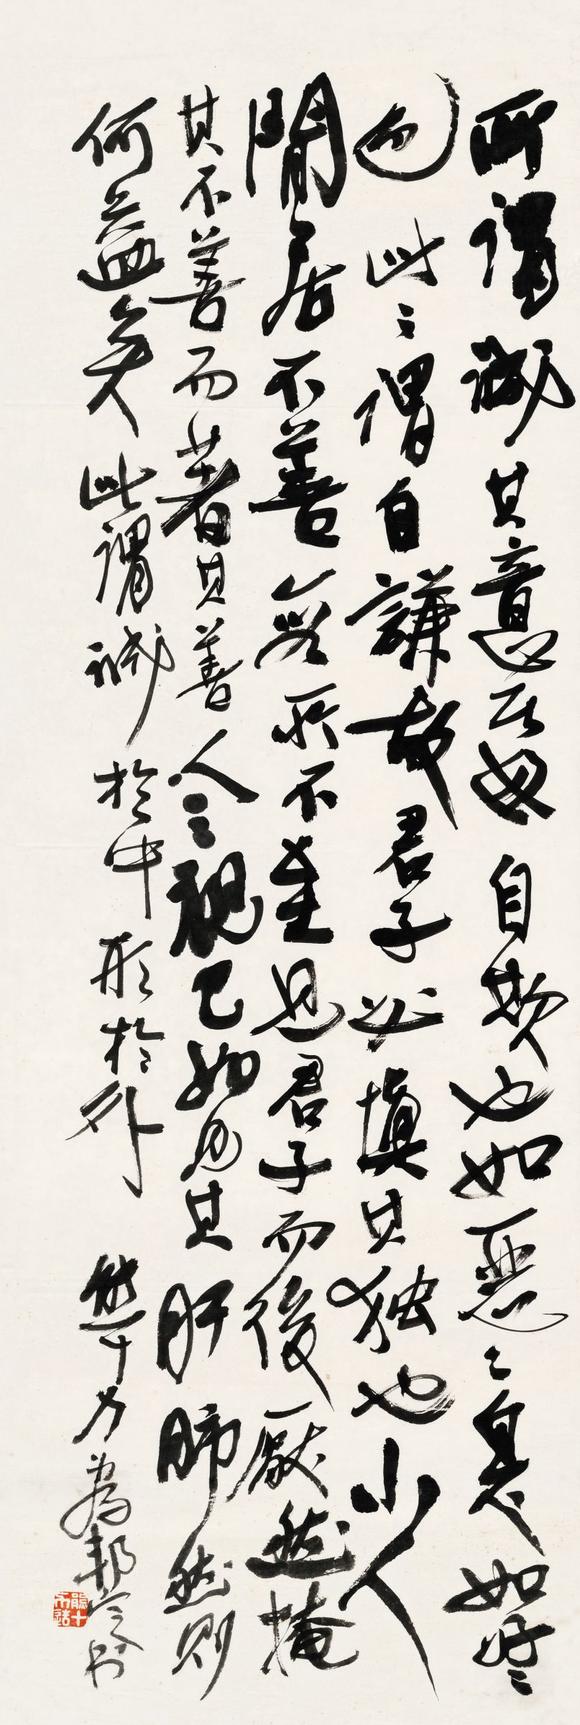 所謂誠其意者毋自欺也如惡々臭如好々
色此之謂自謙故君子必慎其独也小人
閒居不善無所不至見君子而後厭然掩
其不善而著其善人之視己如見其肝肺然則
何益矣此謂誠於中形於外 熊十力為邦书